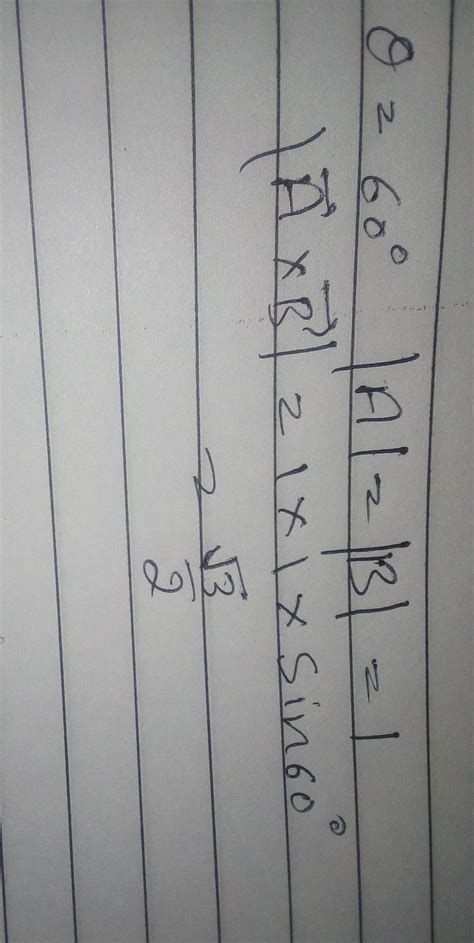 θ = 60° |A| = |B| = 1
|A⃗ × B⃗| = 1 × 1 × Sin60°
= √3/2